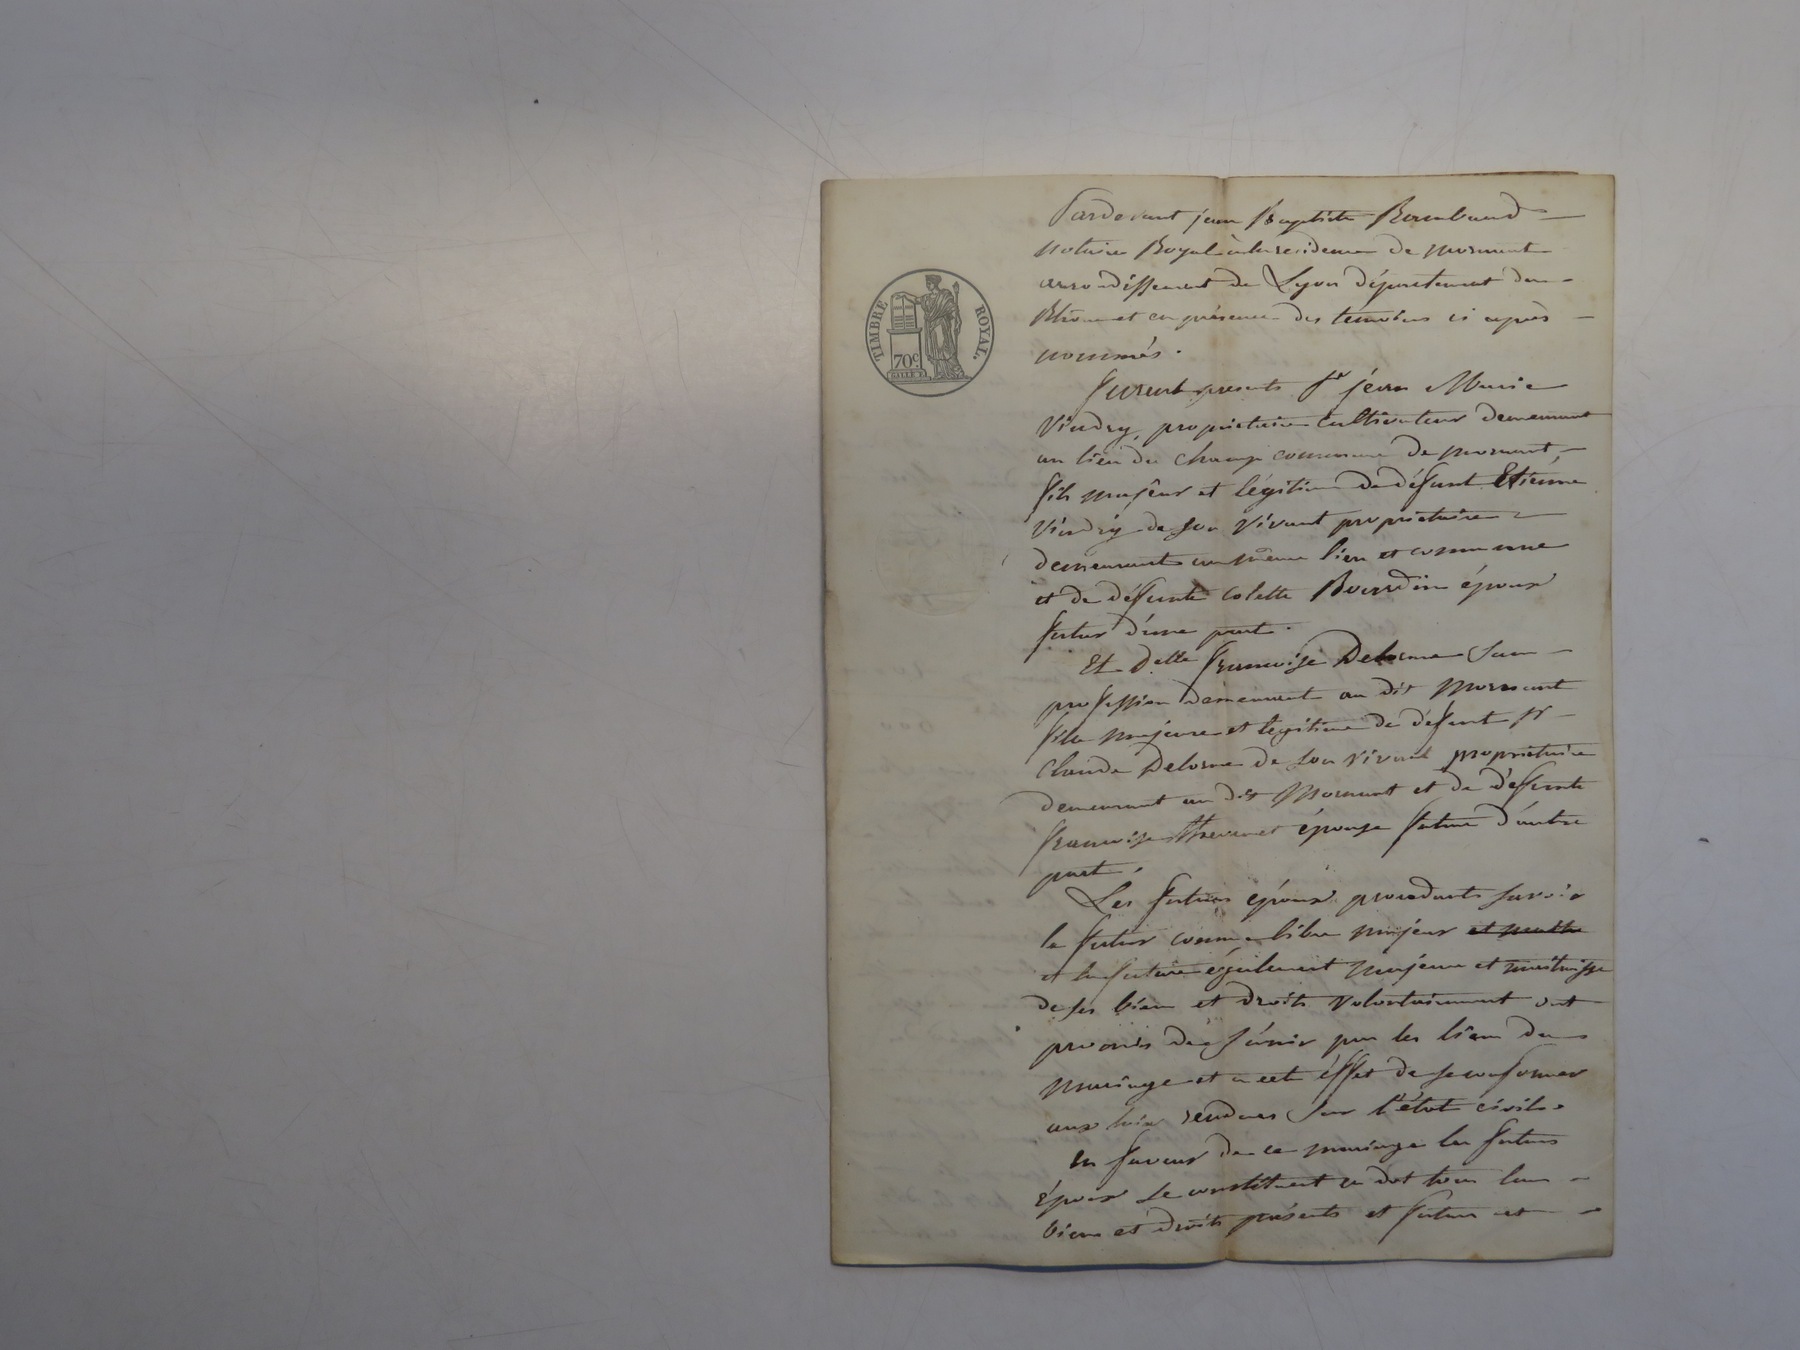 TIMBRE ROYAL
70c.
Pardevant jean Baptiste
notaire Royal à la residence de mornant
arrondissement de Lyon département du
Rhône et en présence des témoins ci après
nommés.
furent présents Sr jean Marie
Vindry, propriétaire cultivateur demeurant
au lieu du champ commune de mornant,
fils majeur et légitime de défunt Etienne
Vindry de son vivant propriétaire
demeurant au même lieu et commune
et de défunte colette Bourdin époux
futur d'une part.
Et Delle francoise Delorme sans
profession demeurant au dit Mornant
fille majeure et legitime de défunt Sr
Claude Delorme de son vivant propriétaire
demeurant au dit Mornant et de défunte
francoise Thevenet épouse future d'autre
part.
Les futurs époux procedants savoir
le futur comme libre majeur et maitre
et la future également majeure et maitraisse
de ses biens et droits volontairement ont
promis de s'unir par les liens du
mariage et a cet éffet de se conformer
aux lois rendues sur l'état civil.
en faveur de ce mariage les futurs
époux se constituent en dot tous leurs
biens et droits présents et futurs et